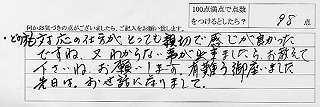 100点満点で点数
をつけるとしたら? 98点
何かお気づきの点がございましたら、ご記入をお願い致します。
どの方も応の仕方がとっても親切で感じが良かった
ですね、又わからない事が出来ましたら、お教えて
下さいね、お願いします。有難う御座いました
先日は、お世話になりまして。